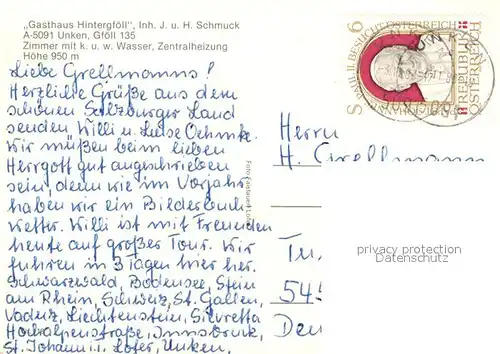 „Gasthaus Hintergföll", Inh. J. u. H. Schmuck
A-5091 Unken, Gföll 135
Zimmer mit k. u. w. Wasser, Zentralheizung
Höhe 950 m
Liebe Grellmanns!
Herzliche Grüße aus dem
schönen Salzburger Land
senden Willi u. Luise Oehmke.
Wir müßen beim lieben
Herrgott gut angeschrieben
sein, denn wie im Vorjahr
haben wir ein Bilderbuch
wetter. Willi ist mit Freunden
heute auf großer Tour. Wir
fuhren in 3 Tagen hier her.
Schwarzwald, Bodensee, Stein
am Rhein, Schweiz, St. Gallen,
Vaduz, Liechtenstein, Silvretta
Hochalpenstraße, Innsbruck,
St. Johann i. T. Lofer, Unken.
Herrn
H. Grellmann
545
privacy protection
Datenschutz
S 6
REPUBLIK
ÖSTERREICH